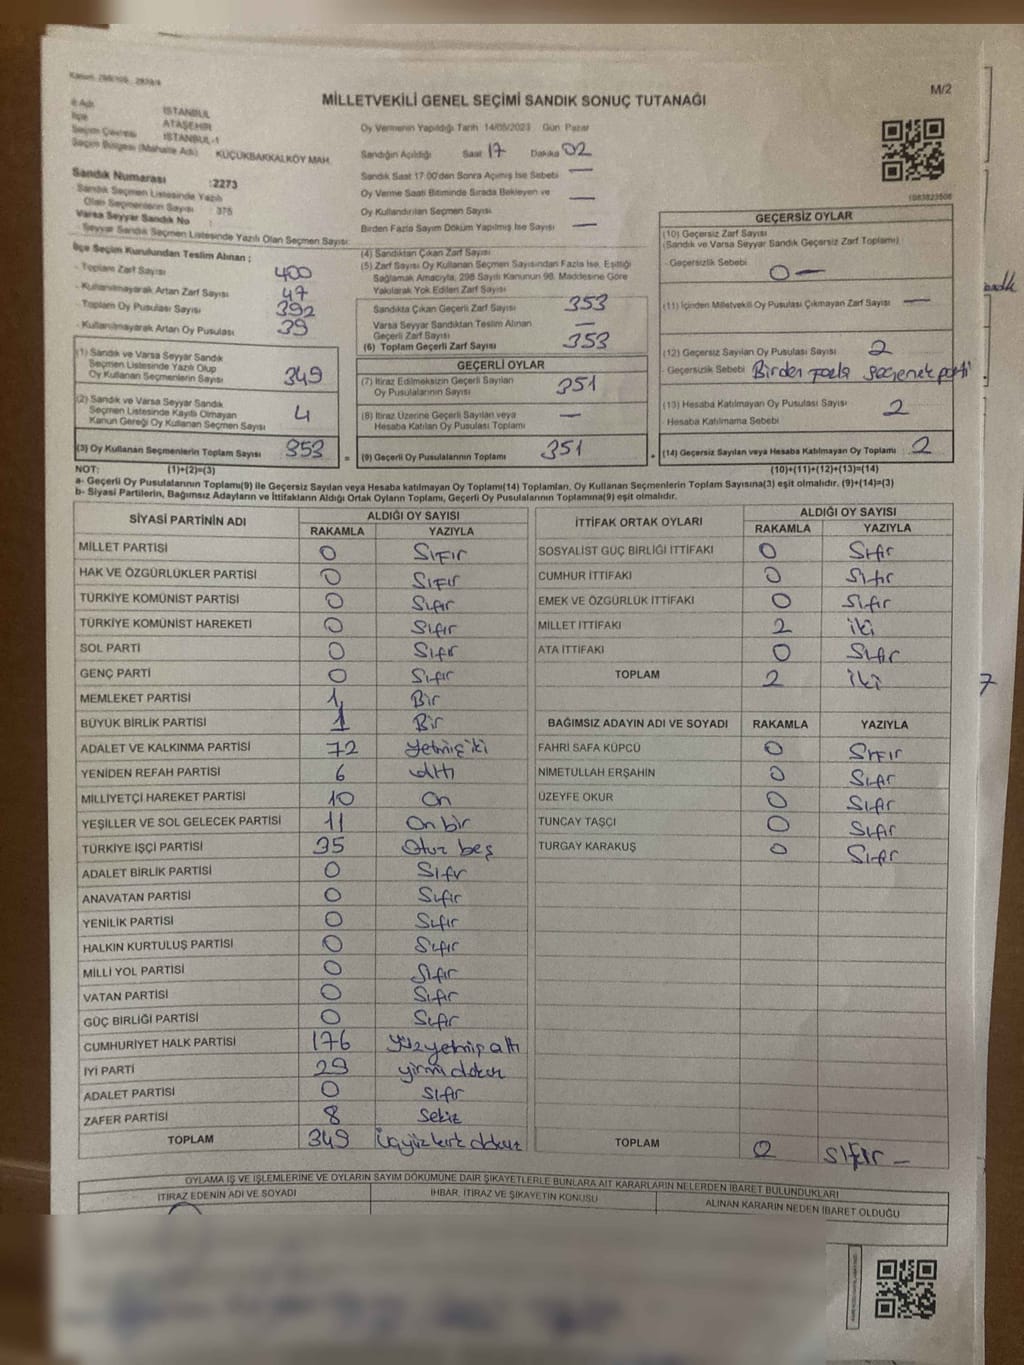 Kanun: 298/105 - 2839/4
M/2
MİLLETVEKİLİ GENEL SEÇİMİ SANDIK SONUÇ TUTANAĞI
İl Adı İSTANBUL
İlçe ATAŞEHİR
Seçim Çevresi İSTANBUL-1
Seçim Bölgesi (Mahalle Adı) KÜÇÜKBAKKALKÖY MAH.
Sandık Numarası :2273
- Sandık Seçmen Listesinde Yazılı
Olan Seçmenlerin Sayısı : 376
Varsa Seyyar Sandık No :
- Seyyar Sandık Seçmen Listesinde Yazılı Olan Seçmen Sayısı:
Oy Vermenin Yapıldığı Tarih 14/05/2023 Gün Pazar
Sandığın Açıldığı Saat 17 Dakika 02
Sandık Saat 17.00'den Sonra Açılmış İse Sebebi —
Oy Verme Saati Bitiminde Sırada Bekleyen ve
Oy Kullandırılan Seçmen Sayısı —
Birden Fazla Sayım Döküm Yapılmış İse Sayısı —
1083823508
İlçe Seçim Kurulundan Teslim Alınan ;
- Toplam Zarf Sayısı 400
- Kullanılmayarak Artan Zarf Sayısı 47
- Toplam Oy Pusulası Sayısı 392
- Kullanılmayarak Artan Oy Pusulası 39
(1) Sandık ve Varsa Seyyar Sandık
Seçmen Listesinde Yazılı Olup
Oy Kullanan Seçmenlerin Sayısı 349
(2) Sandık ve Varsa Seyyar Sandık
Seçmen Listesinde Kayıtlı Olmayan
Kanun Gereği Oy Kullanan Seçmen Sayısı 4
(3) Oy Kullanan Seçmenlerin Toplam Sayısı 353
(4) Sandıktan Çıkan Zarf Sayısı
(5) Zarf Sayısı Oy Kullanan Seçmen Sayısından Fazla İse, Eşitliği
Sağlamak Amacıyla, 298 Sayılı Kanunun 98. Maddesine Göre
Yakılarak Yok Edilen Zarf Sayısı
Sandıkta Çıkan Geçerli Zarf Sayısı 353
Varsa Seyyar Sandıktan Teslim Alınan
Geçerli Zarf Sayısı —
(6) Toplam Geçerli Zarf Sayısı 353
GEÇERLİ OYLAR
(7) İtiraz Edilmeksizin Geçerli Sayılan
Oy Pusulalarının Sayısı 351
(8) İtiraz Üzerine Geçerli Sayılan veya
Hesaba Katılan Oy Pusulası Toplamı —
= (9) Geçerli Oy Pusulalarının Toplamı 351
GEÇERSİZ OYLAR
(10) Geçersiz Zarf Sayısı
(Sandık ve Varsa Seyyar Sandık Geçersiz Zarf Toplamı)
- Geçersizlik Sebebi 0 —
(11) İçinden Milletvekili Oy Pusulası Çıkmayan Zarf Sayısı —
(12) Geçersiz Sayılan Oy Pusulası Sayısı 2
- Geçersizlik Sebebi Birden fazla seçenek parti
(13) Hesaba Katılmayan Oy Pusulası Sayısı 2
Hesaba Katılmama Sebebi
+ (14) Geçersiz Sayılan veya Hesaba Katılmayan Oy Toplamı 2
NOT: (1)+(2)=(3) (10)+(11)+(12)+(13)=(14)
a- Geçerli Oy Pusulalarının Toplamı(9) ile Geçersiz Sayılan veya Hesaba katılmayan Oy Toplamı(14) Toplamları, Oy Kullanan Seçmenlerin Toplam Sayısına(3) eşit olmalıdır. (9)+(14)=(3)
b- Siyasi Partilerin, Bağımsız Adayların ve İttifakların Aldığı Ortak Oyların Toplamı, Geçerli Oy Pusulalarının Toplamına(9) eşit olmalıdır.
SİYASİ PARTİNİN ADI ALDIĞI OY SAYISI
RAKAMLA YAZIYLA
MİLLET PARTİSİ 0 SIFIR
HAK VE ÖZGÜRLÜKLER PARTİSİ 0 SIFIR
TÜRKİYE KOMÜNİST PARTİSİ 0 Sıfır
TÜRKİYE KOMÜNİST HAREKETİ 0 Sıfır
SOL PARTİ 0 Sıfır
GENÇ PARTİ 0 Sıfır
MEMLEKET PARTİSİ 1 Bir
BÜYÜK BİRLİK PARTİSİ 1 Bir
ADALET VE KALKINMA PARTİSİ 72 yetmiş iki
YENİDEN REFAH PARTİSİ 6 altı
MİLLİYETÇİ HAREKET PARTİSİ 10 On
YEŞİLLER VE SOL GELECEK PARTİSİ 11 On bir
TÜRKİYE İŞÇİ PARTİSİ 35 Otuz beş
ADALET BİRLİK PARTİSİ 0 Sıfır
ANAVATAN PARTİSİ 0 Sıfır
YENİLİK PARTİSİ 0 Sıfır
HALKIN KURTULUŞ PARTİSİ 0 Sıfır
MİLLİ YOL PARTİSİ 0 Sıfır
VATAN PARTİSİ 0 Sıfır
GÜÇ BİRLİĞİ PARTİSİ 0 Sıfır
CUMHURİYET HALK PARTİSİ 176 yüz yetmiş altı
İYİ PARTİ 29 yirmi dokuz
ADALET PARTİSİ 0 sıfır
ZAFER PARTİSİ 8 Sekiz
TOPLAM 349 üçyüz kırk dokuz
İTTİFAK ORTAK OYLARI ALDIĞI OY SAYISI
RAKAMLA YAZIYLA
SOSYALİST GÜÇ BİRLİĞİ İTTİFAKI 0 Sıfır
CUMHUR İTTİFAKI 0 Sıfır
EMEK VE ÖZGÜRLÜK İTTİFAKI 0 Sıfır
MİLLET İTTİFAKI 2 iki
ATA İTTİFAKI 0 Sıfır
TOPLAM 2 iki
BAĞIMSIZ ADAYIN ADI VE SOYADI RAKAMLA YAZIYLA
FAHRİ SAFA KÜPCÜ 0 SIFIR
NİMETULLAH ERŞAHİN 0 Sıfır
ÜZEYFE OKUR 0 Sıfır
TUNCAY TAŞÇI 0 Sıfır
TURGAY KARAKUŞ 0 Sıfır
TOPLAM 0 sıfır —
OYLAMA İŞ VE İŞLEMLERİNE VE OYLARIN SAYIM DÖKÜMÜNE DAİR ŞİKAYETLERLE BUNLARA AİT KARARLARIN NELERDEN İBARET BULUNDUKLARI
İTİRAZ EDENİN ADI VE SOYADI İHBAR, İTİRAZ VE ŞİKAYETİN KONUSU ALINAN KARARIN NEDEN İBARET OLDUĞU
7